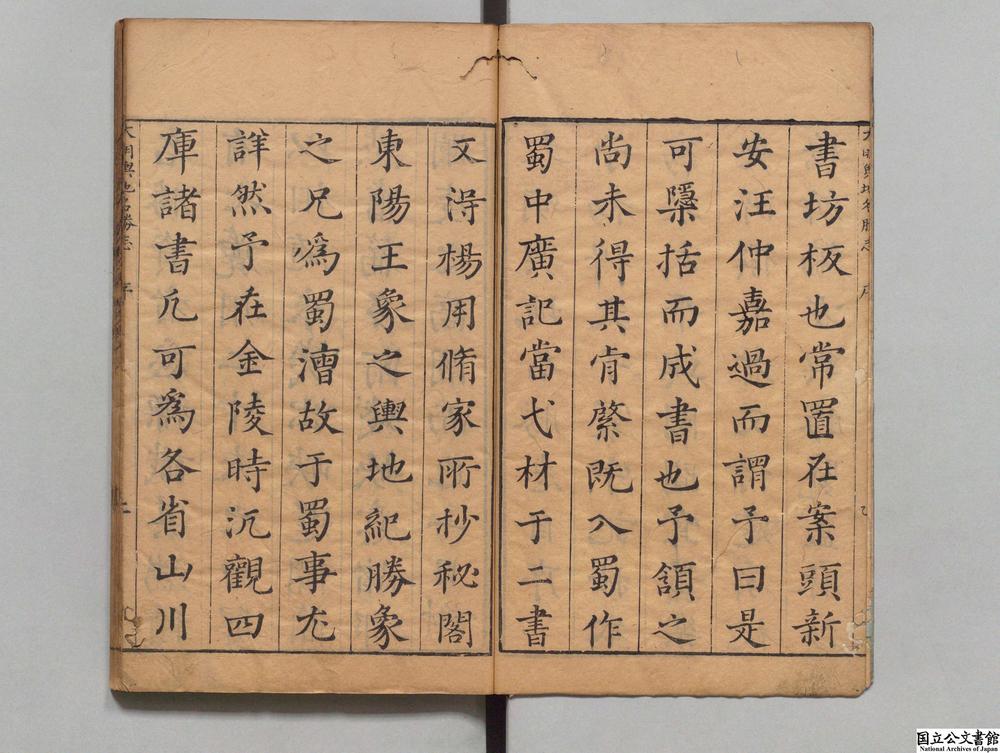 大明輿地名勝志 序
書坊板也常置在案頭新
安汪仲嘉過而謂予曰是
可櫽括而成書也予頷之
尚未得其肯綮既入蜀作
蜀中廣記當弋材于二書
又淂楊用脩家所抄秘閣
東陽王象之輿地紀勝象
之兄爲蜀漕故于蜀事尤
詳然予在金陵時沉觀四
庫諸書凡可爲各省山川
大明輿地名勝志 序 二
国立公文書館
National Archives of Japan